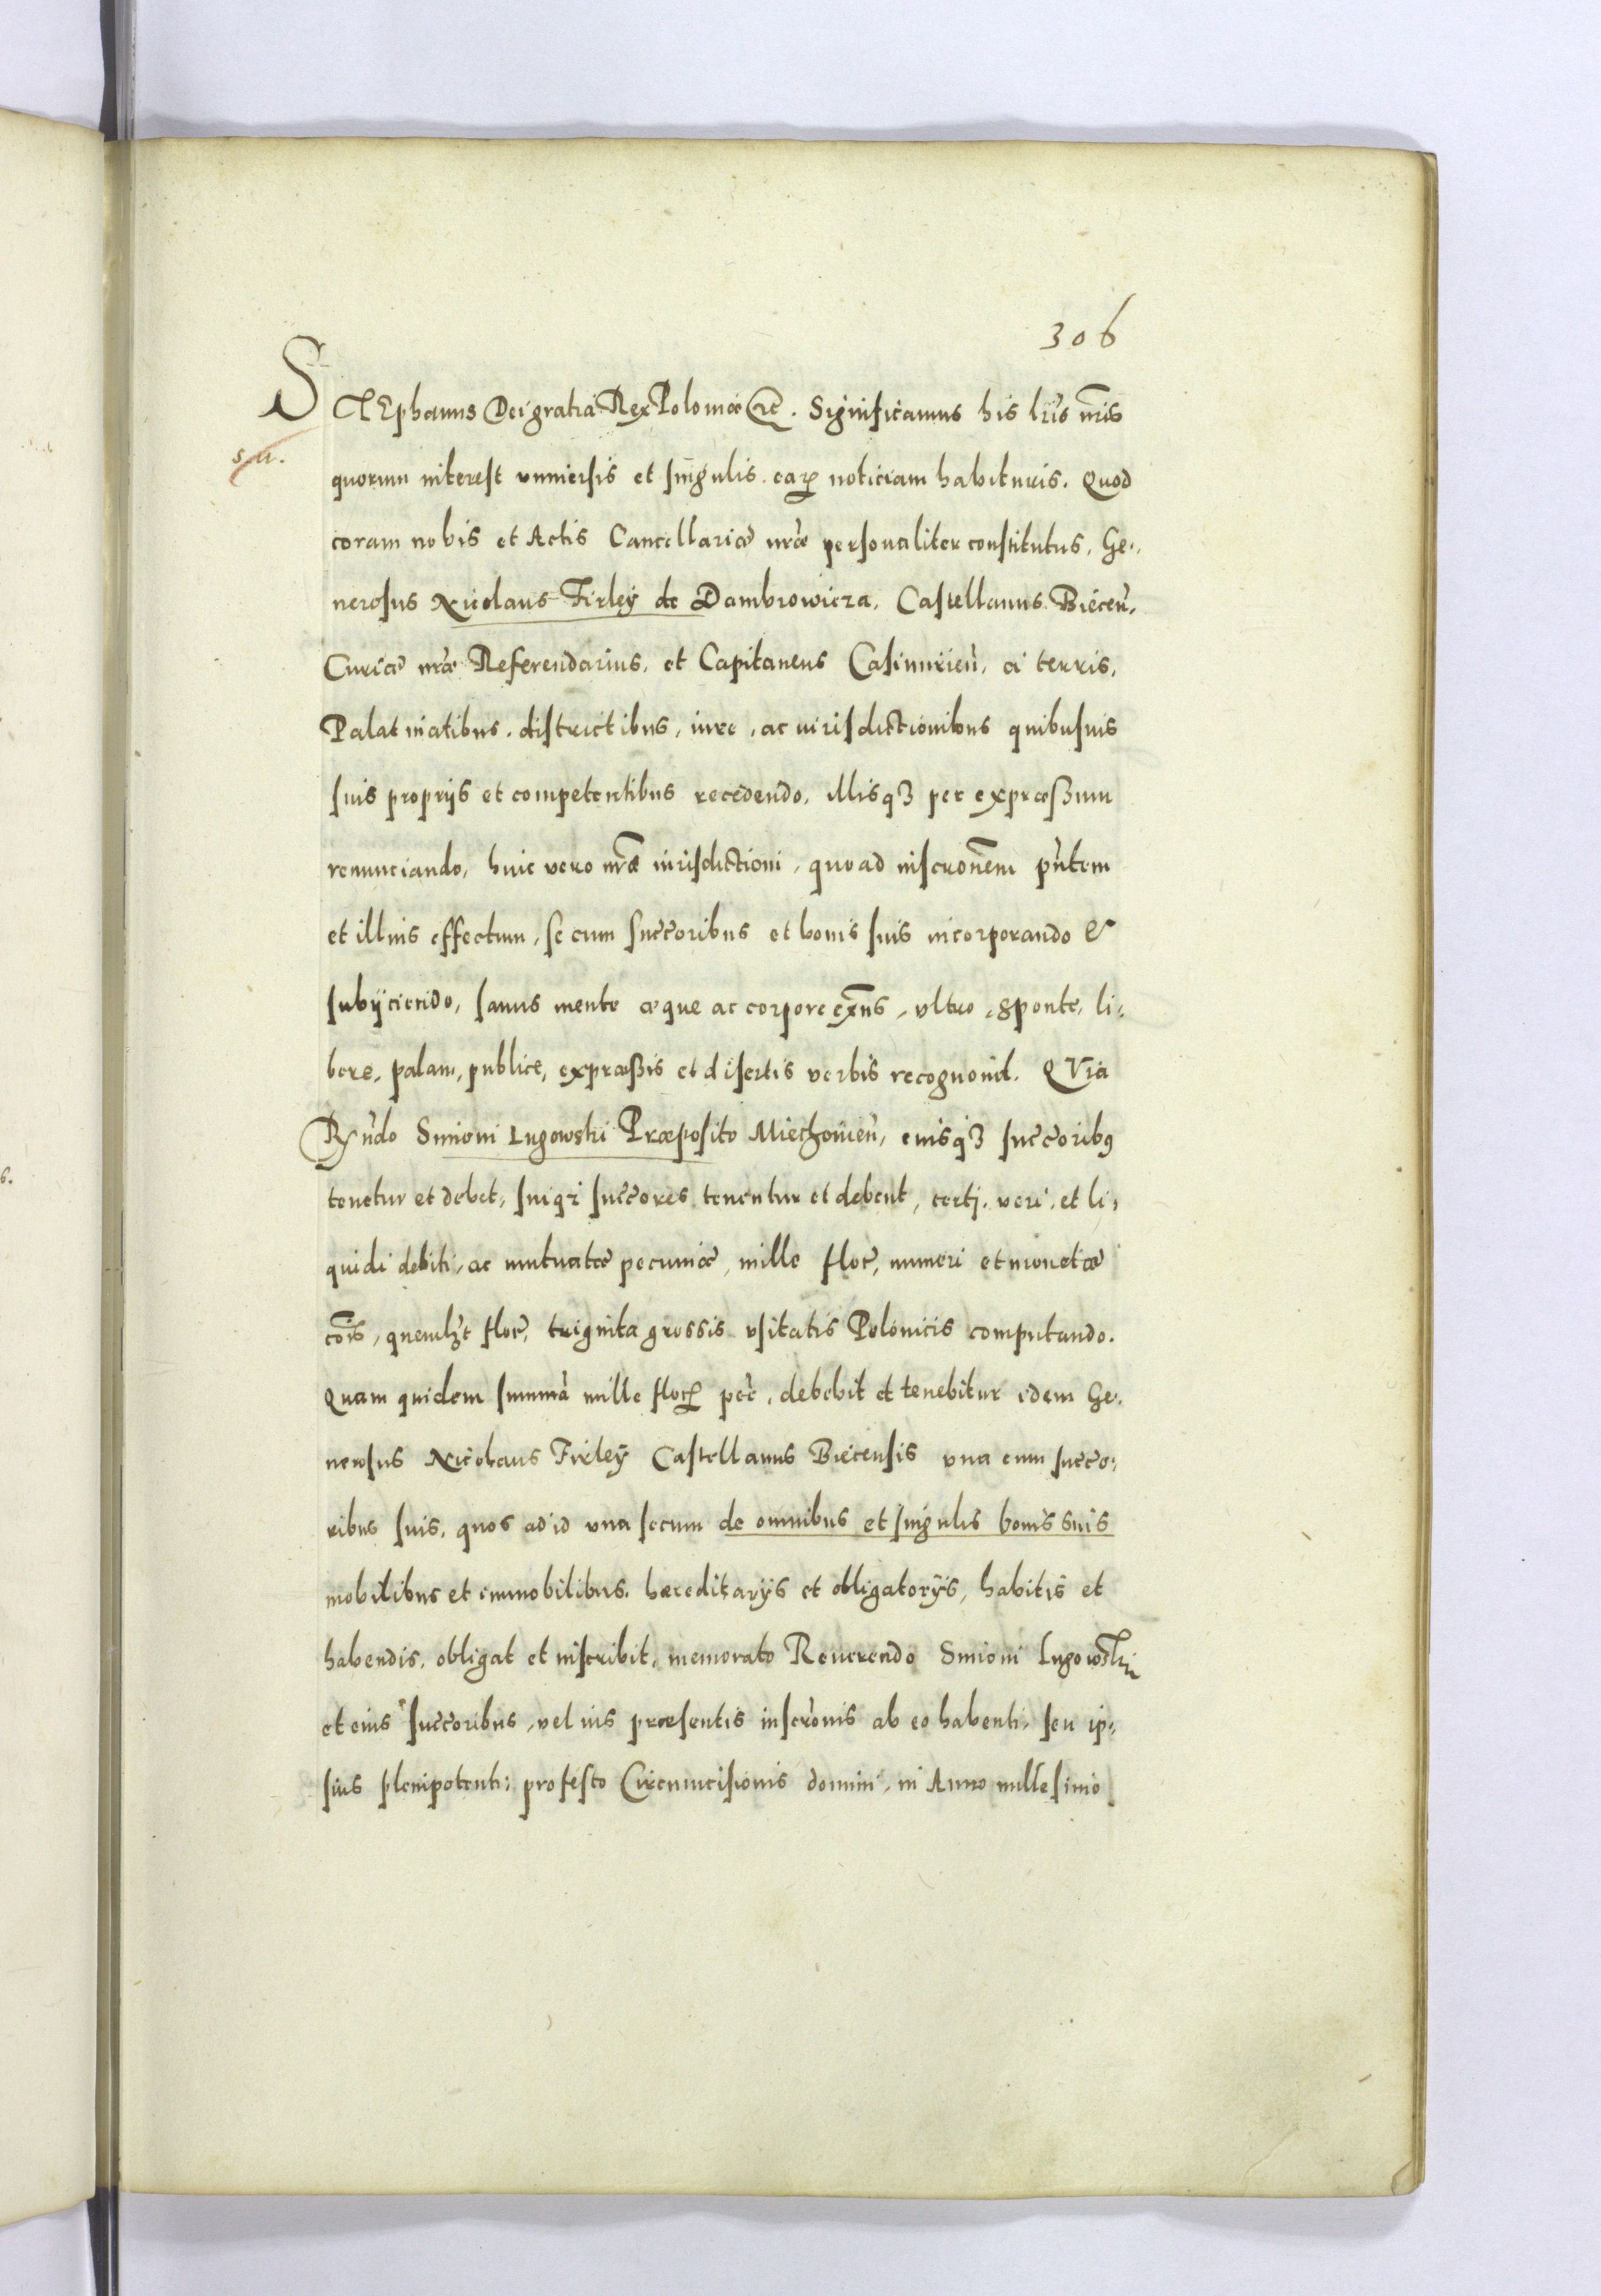 306
STEphanus Dei gratia Rex Poloniæ etc. Significamus his lr̃is nr̃is
s. n.
quorum interest vniuersis et singulis earꝝ noticiam habituris. Quod
coram nobis et Actis Cancellariæ nr̃æ personaliter constitutus, Ge-
nerosus Nicolaus Firleÿ de Dambrowicza, Castellanus Biecen̄,
Curiæ nr̃æ Referendarius, et Capitaneus Casimirien̄, a terris,
Palatinatibus, districtibus, iure, ac iurisdictionibus quibusuis
suis proprijs et competentibus recedendo, illisqꝫ per expræssum
renunciando, huic vero nr̃æ iurisdictioni, quoad inscrõnem pñtem
et illius effectum, se cum succ̃oribus et bonis suis incorporando &
subÿciendo, sanus mente æque ac corpore ex̃ns, vltro, sponte, li-
bere, palam, publice, expræssis et disertis verbis recognouit. QVia
Rñdo Simioni Lugowski Præposito Miechouien̄, eiusqꝫ succ̃oribꝰ
tenetur et debet, suiqꝫ succ̃ores tenentur et debent, certi, veri, et li-
quidi debiti, ac mutuatæ pecuniæ, mille flor̃, numeri et monetæ
cõis, quemlꝫt flor̃, triginta grossis vsitatis Polonicis computando.
Quam quidem summã mille florꝝ pec̃, debebit et tenebitur idem Ge-
nerosus Nicolaus Firleÿ Castellanus Biecensis vna cum succo-
ribus suis, quos ad id vna secum de omnibus et singulis bonis suis
mobilibus et immobilibus, hæreditarÿs et obligatorÿs, habitis et
habendis, obligat et inscribit, memorato Reuerendo Simioni Lugowski
et eius succ̃oribus, vel ius præsentis inscrõnis ab eo habenti, seu ip-
sius plenipotenti: pro festo Circumcisionis domini, in Anno millesimo